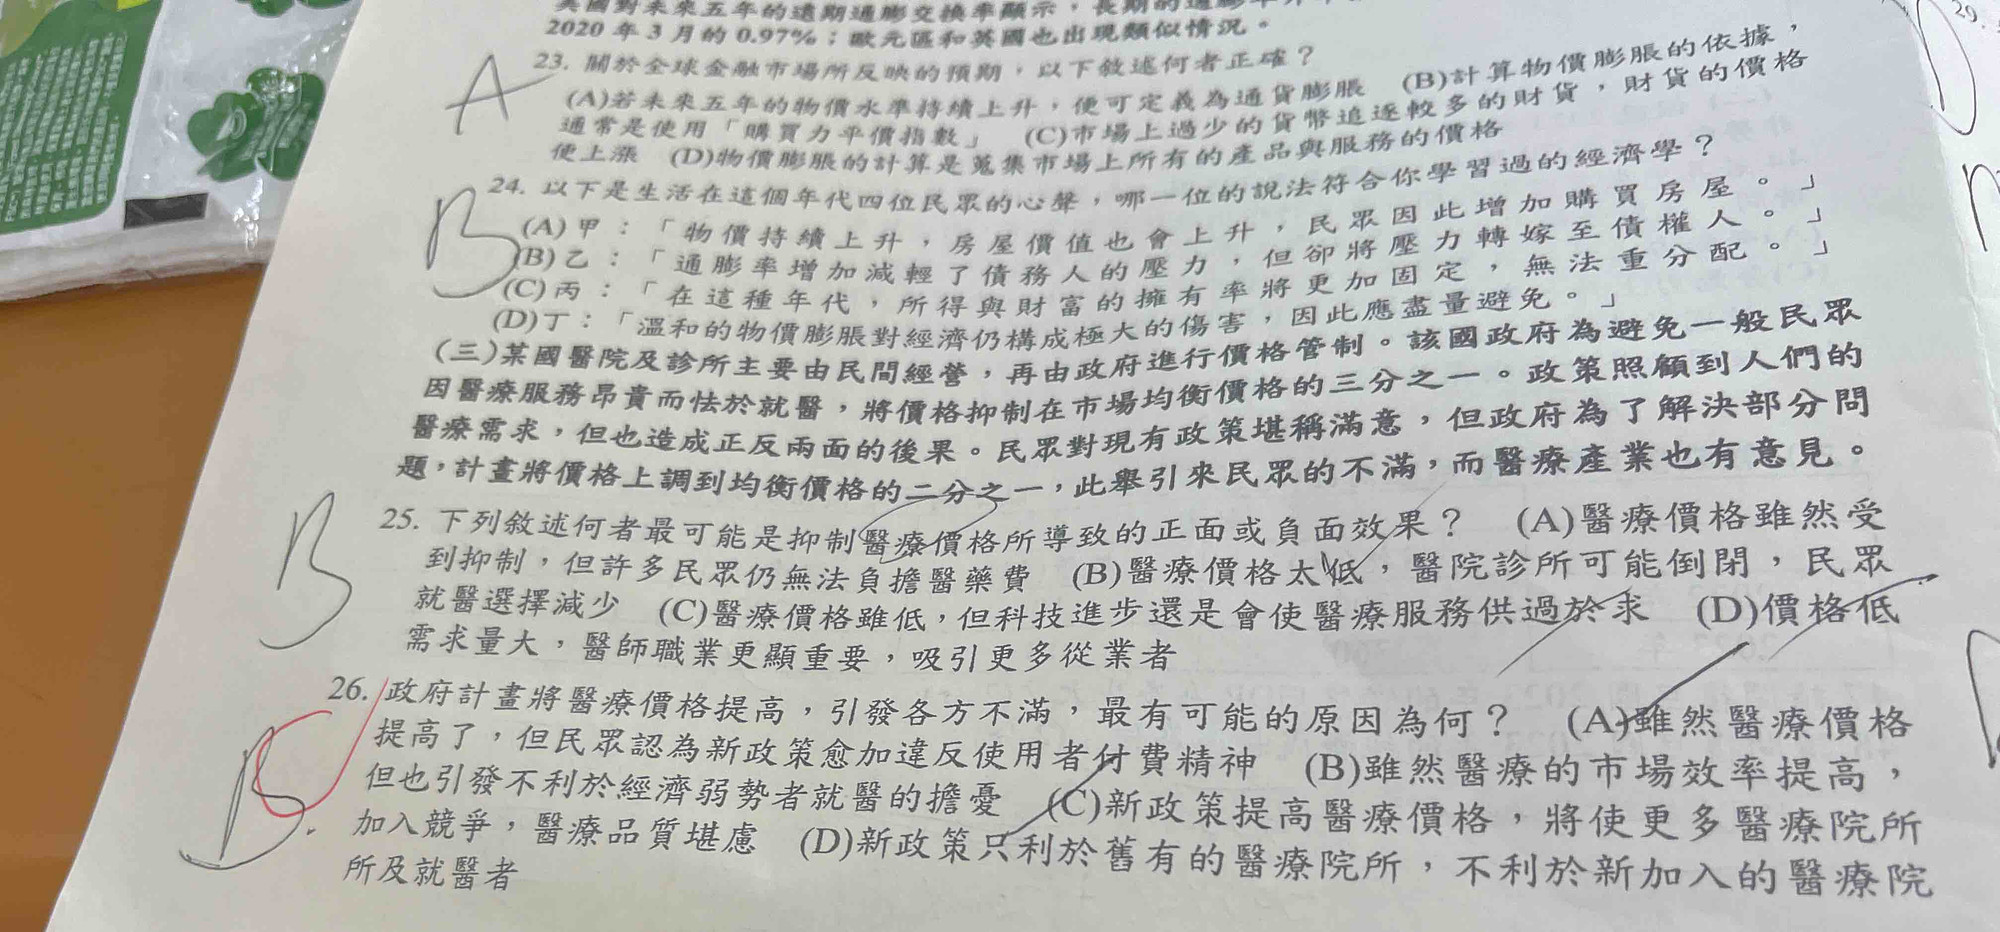 美國對未來五年的遠期通膨交換率顯示，長期的通膨
2020 年 3 月的 0.97%；歐元區和英國也出現類似情況。
23. 關於全球金融市場所反映的預期，以下敘述何者正確？
(A)若未來五年的物價水準持續上升，便可定義為通貨膨脹　(B)計算物價膨脹的依據，
通常是使用「購買力平價指數」　(C)市場上過少的貨幣追逐較多的財貨，財貨的價格
便上漲　(D)物價膨脹的計算是蒐集市場上所有的產品與服務的價格
A
24. 以下是生活在這個年代四位民眾的心聲，哪一位的說法符合你學習過的經濟學？
(A)甲：「物價持續上升，房屋價值也會上升，民眾因此增加購買房屋。」
(B)乙：「通膨率增加減輕了債務人的壓力，但卻將壓力轉嫁至債權人。」
(C)丙：「在這種年代，所得與財富的擁有率將更加固定，無法重分配。」
(D)丁：「溫和的物價膨脹對經濟仍構成極大的傷害，因此應盡量避免。」
B
(三)某國醫院及診所主要由民間經營，再由政府進行價格管制。該國政府為避免一般民眾
因醫療服務昂貴而怯於就醫，將價格抑制在市場均衡價格的三分之一。政策照顧到人們的
醫療需求，但也造成正反兩面的後果。民眾對現有政策堪稱滿意，但政府為了解決部分問
題，計畫將價格上調到均衡價格的二分之一，此舉引來民眾的不滿，而醫療產業也有意見。
25. 下列敘述何者最可能是抑制醫療價格所導致的正面或負面效果？　(A)醫療價格雖然受
到抑制，但許多民眾仍無法負擔醫藥費　(B)醫療價格太低，醫院診所可能倒閉，民眾
就醫選擇減少　(C)醫療價格雖低，但科技進步還是會使醫療服務供過於求　(D)價格低
需求量大，醫師職業更顯重要，吸引更多從業者
B
26. 政府計畫將醫療價格提高，引發各方不滿，最有可能的原因為何？　(A)雖然醫療價格
提高了，但民眾認為新政策愈加違反使用者付費精神　(B)雖然醫療的市場效率提高，
但也引發不利於經濟弱勢者就醫的擔憂　(C)新政策提高醫療價格，將使更多醫療院所
加入競爭，醫療品質堪慮　(D)新政策只利於舊有的醫療院所，不利於新加入的醫療院
所及就醫者
B